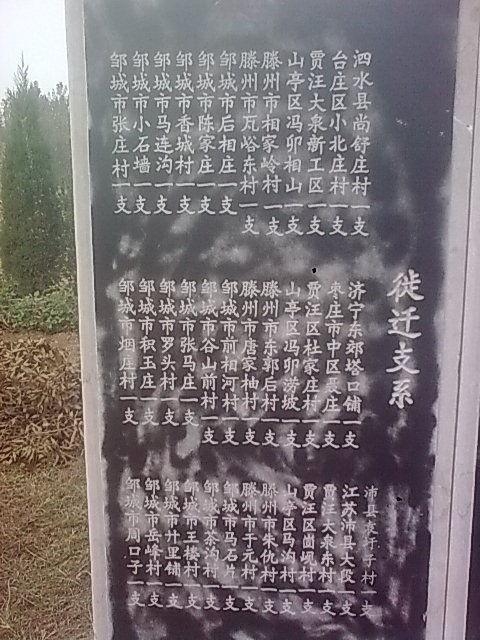 徙迁支系
泗水县尚舒庄村一支
台庄区小北庄村一支
贾汪大泉新工区一支
山亭区冯卯相山一支
滕州市相家岭村一支
滕州市瓦峪东村一支
邹城市后相庄一支
邹城市陈家庄一支
邹城市香城村一支
邹城市马连沟一支
邹城市小石墙一支
邹城市张庄村一支
济宁东郊塔口铺一支
枣庄市中区聂庄一支
贾汪区杜家庄村一支
山亭区冯卯涝坡一支
滕州市东郭后村一支
滕州市唐家柚村一支
邹城市前相河村一支
邹城市谷山前村一支
邹城市张马庄一支
邹城市罗头村一支
邹城市积玉庄一支
邹城市烟庄村一支
江苏沛县大段一支
贾汪大泉东村一支
贾汪区崮岘村一支
山亭区马沟村一支
滕州市朱仇村一支
滕州市于元村一支
邹城市马石片一支
邹城市茶沟村一支
邹城市王楼村一支
邹城市廿里铺一支
邹城市岳峰村一支
邹城市周口子一支